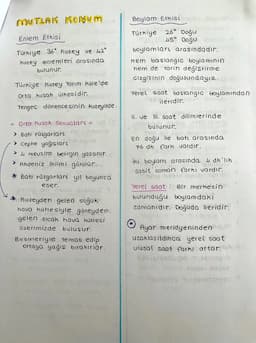 MUTLAK KONUM
Enlem Etkisi
Türkiye 36° Kuzey ve 42°
Kuzey enlemleri arasında
bulunur.
Türkiye Kuzey Yarım Küre'de
Orta kuşak ülkesidir.
Yengeç dönencesinin kuzeyinde.
- Orta Kuşak Sonuçları -
> Batı rüzgarları
> Cephe yağışları
> 4 mevsim belirgin yaşanır.
> Akdeniz iklimi görülür.
* Batı rüzgarları yıl boyunca
eser.
* Kuzeyden gelen soğuk
hava kütlesiyle güneyden
gelen sıcak hava kütlesi
üzerimizde buluşur.
Birbirleriyle temas edip
ortaya yağış bırakırlar
Boylam Etkisi
Türkiye 26° Doğu
45° Doğu
boylamları arasındadır.
Hem başlangıç boylamının
hem de tarih değiştirme
çizgisinin doğusundayız.
Yerel saat başlangıç boylamından
ileridir.
2. ve 3. saat dilimlerinde
bulunur.
En doğu ile batı arasında
76 dk fark vardır.
İki boylam arasında 4 dk'lık
sabit zaman farkı vardır.
Yerel saat: Bir merkezin
bulunduğu boylamdaki
zamanıdır. Doğuda ileridir.
Ayar meridyeninden
uzaklaşıldıkça yerel saat
ulusal saat farkı artar.